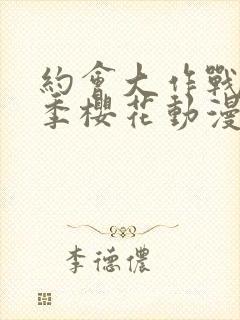 約會大作戰
季櫻花動漫
李德儂